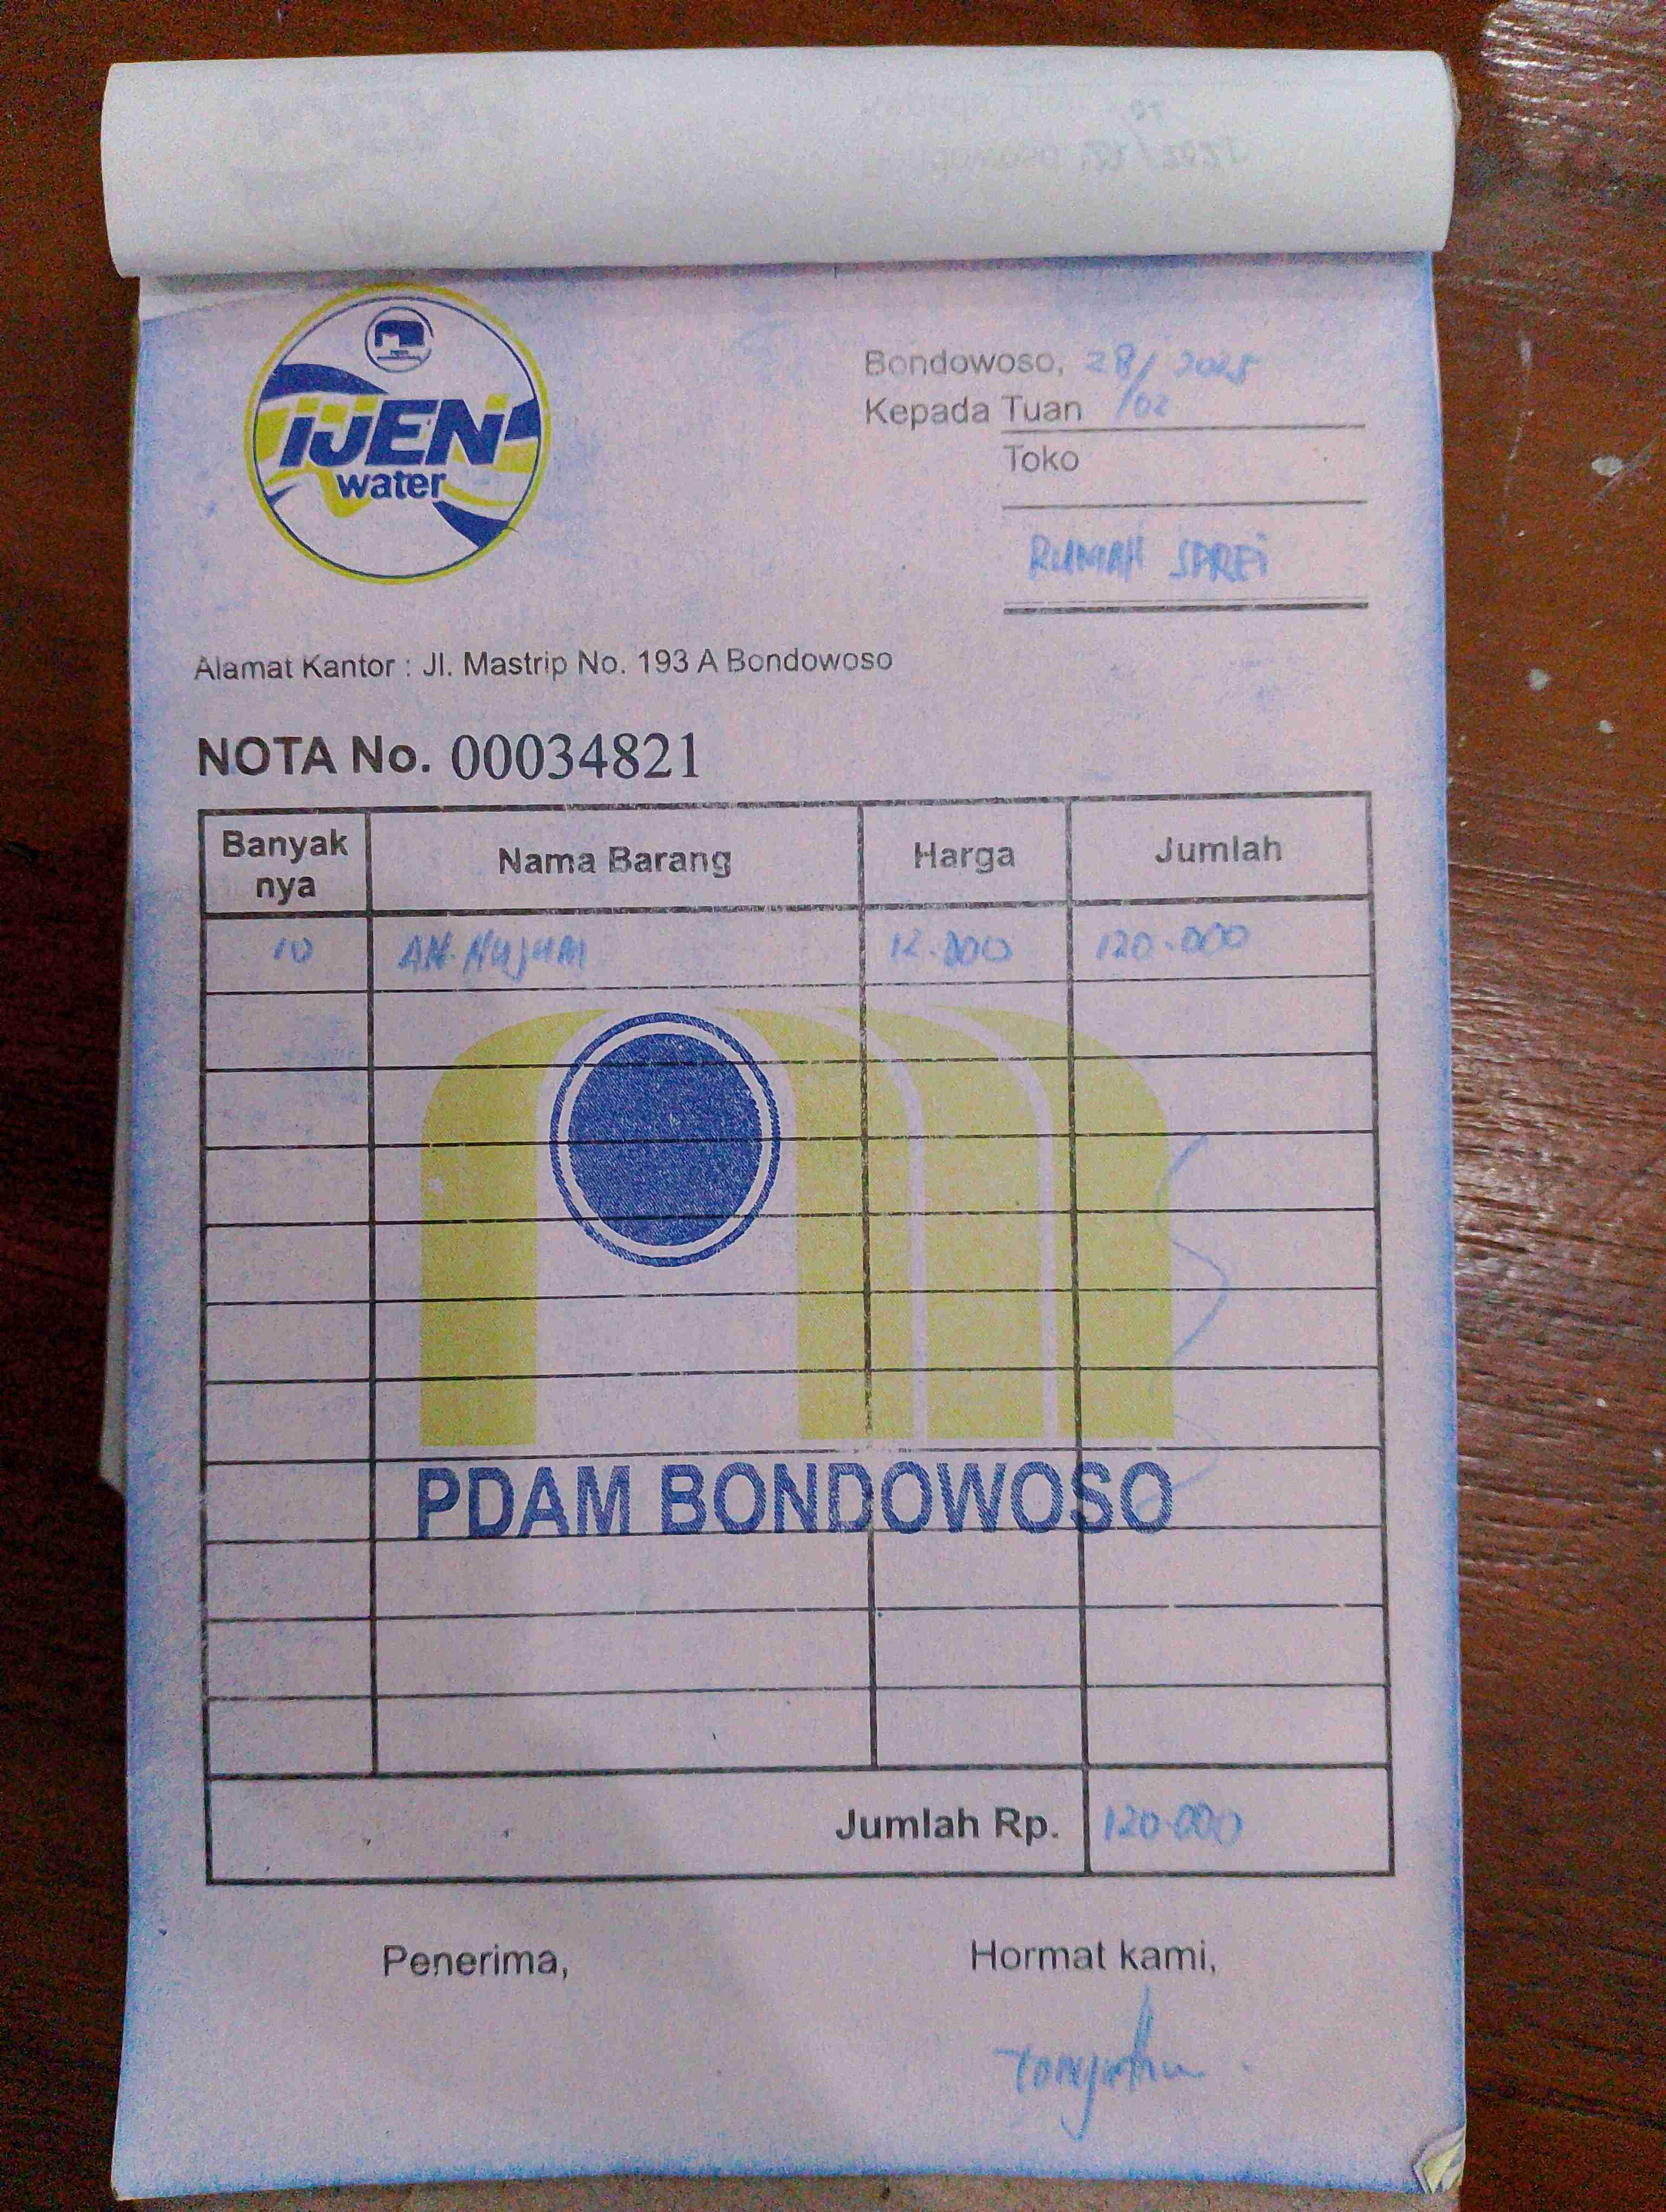 iJEN
water
Bondowoso, 28/02 2025
Kepada Tuan
Toko
RUMAH SPREi
Alamat Kantor : Jl. Mastrip No. 193 A Bondowoso
NOTA No. 00034821
Banyak nya Nama Barang Harga Jumlah
10 AN-Nujum 12.000 120.000
PDAM BONDOWOSO
Jumlah Rp. 120.000
Penerima, Hormat kami,